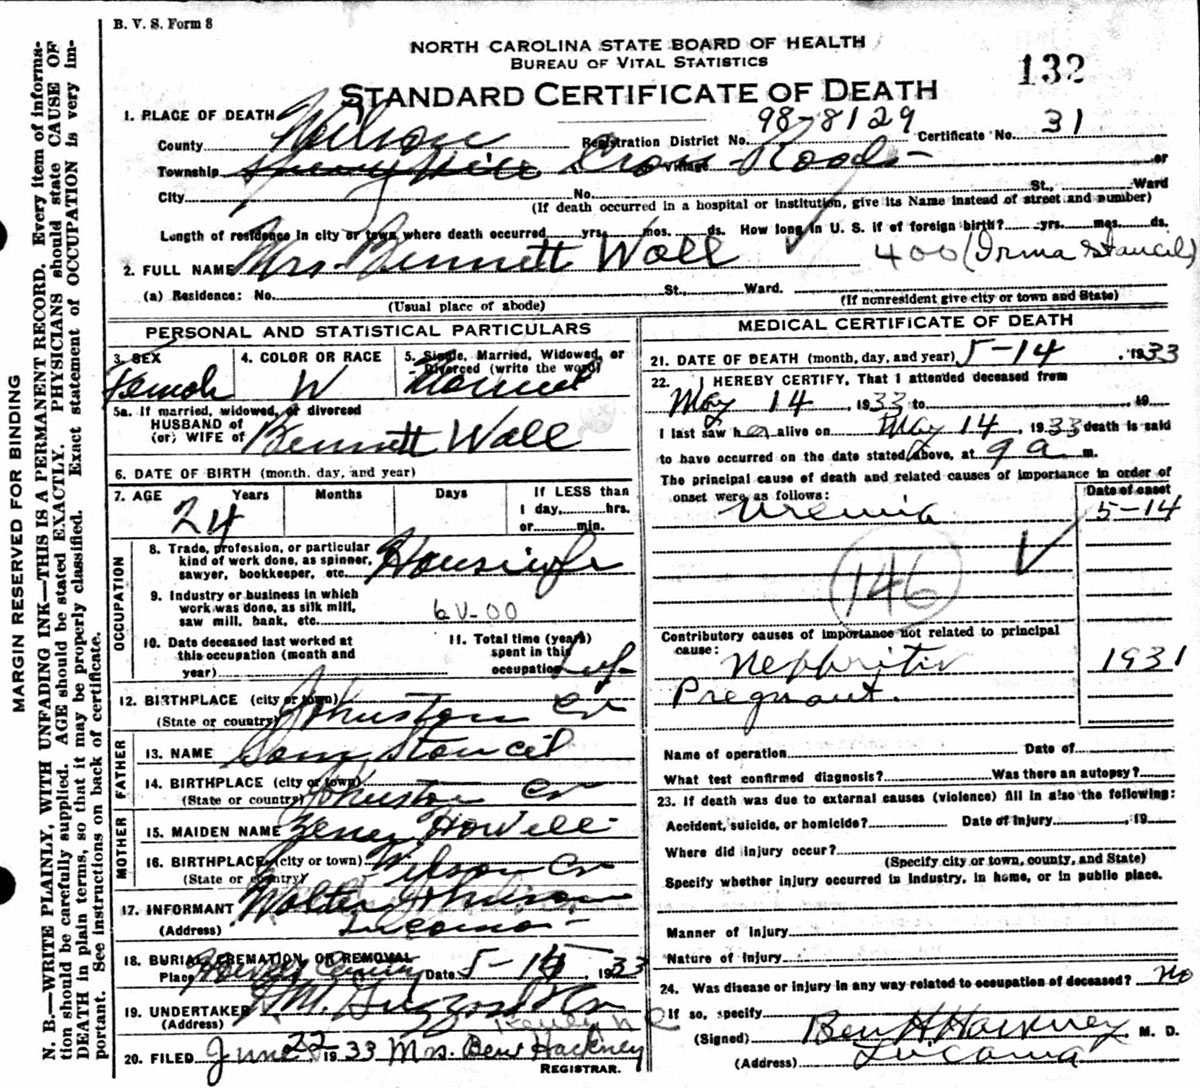 B. V. S. Form 8
NORTH CAROLINA STATE BOARD OF HEALTH
BUREAU OF VITAL STATISTICS
132
STANDARD CERTIFICATE OF DEATH
1. PLACE OF DEATH
County Wilson Registration District No. 98-8129 Certificate No. 31
Township Spring Hill Cross Roads Village or
City No. St., Ward
(If death occurred in a hospital or institution, give its Name instead of street and number)
Length of residence in city or town where death occurred yrs. mos. ds. How long in U. S. if of foreign birth? yrs. mos. ds.
2. FULL NAME Mrs Bennett Wall 400 (Irma Stancil)
(a) Residence: No. St., Ward.
(Usual place of abode) (If nonresident give city or town and State)
PERSONAL AND STATISTICAL PARTICULARS
3. SEX 4. COLOR OR RACE 5. Single, Married, Widowed, or
Divorced (write the word)
Female W Married
5a. If married, widowed, or divorced
HUSBAND of
(or) WIFE of Bennett Wall
6. DATE OF BIRTH (month, day, and year)
7. AGE Years Months Days If LESS than
24 1 day, hrs.
or min.
OCCUPATION
8. Trade, profession, or particular
kind of work done, as spinner, Housewife
sawyer, bookkeeper, etc.
9. Industry or business in which
work was done, as silk mill,
saw mill, bank, etc.
10. Date deceased last worked at 11. Total time (years)
this occupation (month and spent in this
year) occupation Life
12. BIRTHPLACE (city or town) Johnston Co
(State or country)
FATHER
13. NAME Stancil
14. BIRTHPLACE (city or town) Johnston Co
(State or country)
MOTHER
15. MAIDEN NAME Howell
16. BIRTHPLACE (city or town) Wilson Co
(State or country)
17. INFORMANT Walter Johnson
(Address) Lucama
18. BURIAL, CREMATION, OR REMOVAL
Place Cemetery Date 5-15 1933
19. UNDERTAKER
(Address) Kenly N C
20. FILED June 22 1933 Mrs. Ben Hackney
REGISTRAR.
MEDICAL CERTIFICATE OF DEATH
21. DATE OF DEATH (month, day, and year) 5-14, 1933
22. I HEREBY CERTIFY, That I attended deceased from
May 14, 1933 to , 19
I last saw her alive on May 14, 1933 death is said
to have occurred on the date stated above, at 9 a m.
The principal cause of death and related causes of importance in order of
onset were as follows: Date of onset
Uremia 5-14
146
Contributory causes of importance not related to principal
cause: Nephritis 1931
Pregnant.
Name of operation Date of
What test confirmed diagnosis? Was there an autopsy?
23. If death was due to external causes (violence) fill in also the following:
Accident, suicide, or homicide? Date of injury , 19
Where did injury occur?
(Specify city or town, county, and State)
Specify whether injury occurred in industry, in home, or in public place.
Manner of injury
Nature of injury
24. Was disease or injury in any way related to occupation of deceased? No
If so, specify
(Signed) Ben H Hackney M. D.
(Address) Lucama
MARGIN RESERVED FOR BINDING
N. B.—WRITE PLAINLY, WITH UNFADING INK—THIS IS A PERMANENT RECORD. Every item of informa-
tion should be carefully supplied. AGE should be stated EXACTLY. PHYSICIANS should state CAUSE OF
DEATH in plain terms, so that it may be properly classified. Exact statement of OCCUPATION is very im-
portant. See instructions on back of certificate.